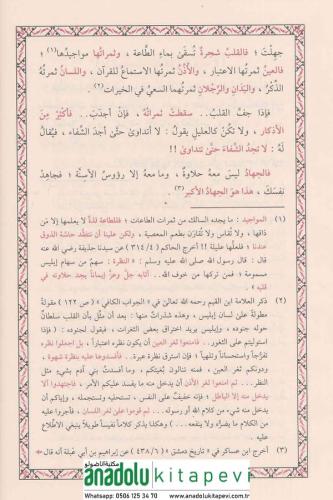 جهلتَ ؛ فالقلبُ شجرةٌ تُسقىٰ بماءِ الطَّاعة ، وثمراتُها مواجيدُها(١) ؛
فالعينُ ثمرتُها الاعتبار ، والأُذُنُ ثمرتُها الاستماعُ للقرآن ، واللسانُ ثمرتُهُ
الذِّكْرُ ، واليَدَانِ والرِّجْلانِ ثمرتُهما السعيُ في الخيرات(٢) .
فإذا جفَّ القلبُ.. سقطتْ ثمراتُهُ ، فإنْ أجدَبَ.. فأَكثِرْ مِنَ
الأذكار ، ولا تكُنْ كالعليلِ يقولُ : لا أتداوىٰ حتَّىٰ أجدَ الشِّفاء ، فيُقالُ
لهُ : لا تجِدُ الشِّفاءَ حتَّىٰ تتداوىٰ !!
فالجهادُ ليسَ معهُ حلاوةٌ ، وما معهُ إلا رؤوسُ الأسِنَّة ؛ فجاهِدْ
نفسَكَ ، هذا هوَ الجهادُ الأكبرُ(٣) .
(١) المواجيد : ما يجده السالك من ثمرات الطاعات ؛ فللطاعة لذةٌ لا يعلمها إلا مَن
ذاقها ، ولا تُقاس ولا تُقارَن بطعم المعصية ، ولكن علينا أن نتفقَّد حاسَّة الذوق
عندنا ؛ فلعلَّها عليلة !! أخرج الحاكم ( ٣١٤/٤ ) عن سيدنا حذيفة رضي الله عنه
قال : قال رسول الله صلى الله عليه وسلم : « النظرة : سهمٌ من سهام إبليس
مسمومة ؛ فمن تركها من خوف الله.. أثابه جلَّ وعزَّ إيماناً يجد حلاوته في
قلبه » .
(٢) ذكر العلامة ابن القيم رحمه الله تعالىٰ في « الجواب الكافي » ( ص ١٢٢ ) مقولةً
مطولةً علىٰ لسان إبليس ، وهذه شذراتٌ منها : بعد أن مثَّل بأن القلب سلطانٌ
حوله جنوده ، وإبليس يريد اختراق بعض الثغرات ، فيقول لجنوده : ( فإذا
استوليتم على الثغور.. فامنعوا ثغر العين أن يكون نظره اعتباراً ، بل اجعلوا نظره
تفرُّجاً واستحساناً وتلهِّياً ؛ فإن استرق نظرة عبرة.. فأفسدوها عليه بنظرة شهوة ،
ودونكم ثغر العين ، فمنه تنالون بُغيتكم ، وما أفسدتُ بني آدم بشيء مثل
النظر... ثم امنعوا ثغر الأذن أن يدخل منه ما يفسد عليكم الأمر ، فاجتهدوا ألَّا
يدخل منه إلا الباطل ؛ فإنه خفيف على النفس ، تستحليه وتستحمله ، وإياكم أن
يدخل منه شيء من كلام الله أو رسوله... ثم قوموا علىٰ ثغر اللسان ، فأجروا عليه
من الكلام ما يضره ولا ينفعه... ) وهكذا يذكر كلاماً نفيساً طويلاً ينبغي الاطلاع
عليه .
(٣) أخرج ابن عساكر في « تاريخ دمشق » ( ٤٣٨/٦ ) عن إبراهيم بن أبي عَبلة أنه قال
مكتبة الأناضولي
anadolu kitapevi
Whatsapp: 0506 125 34 70 www.anadolukitapevi.com.tr